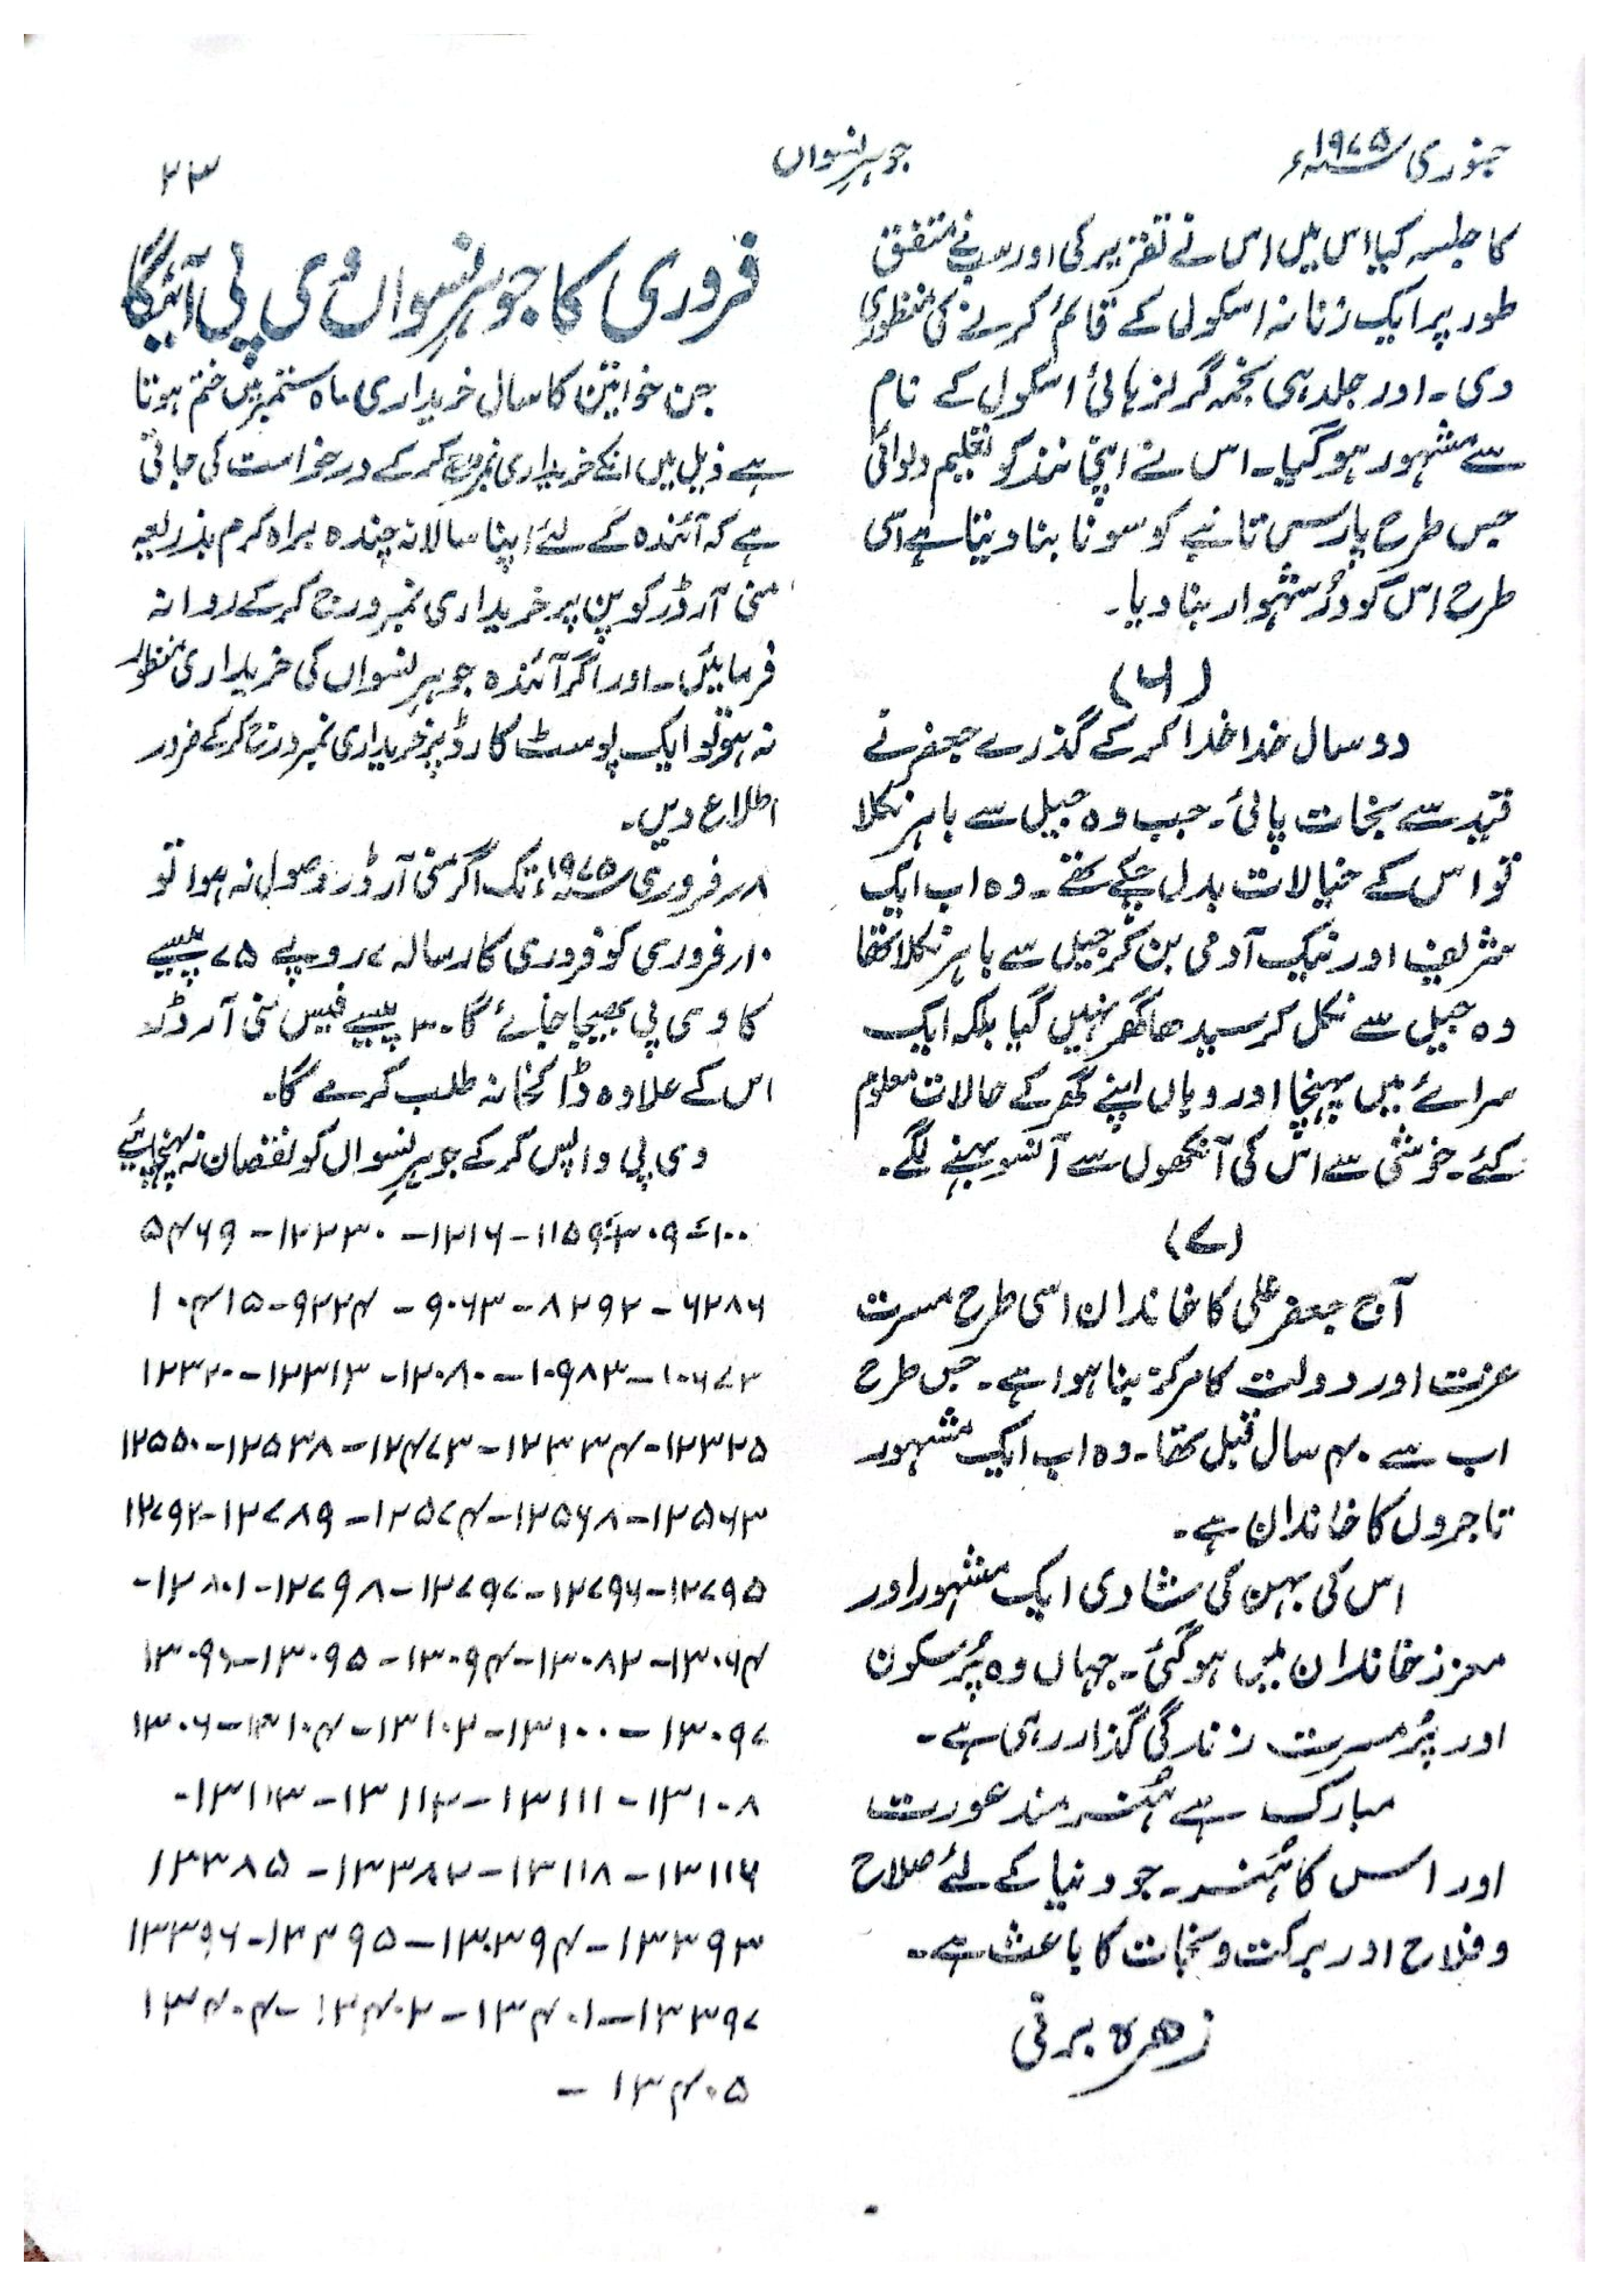 جنوری ۱۹۷۵ء
جوہر نسواں
۲۳
کا جلسہ کیا اس میں اس نے تقریر کی اور سب نے متفق
طور پر ایک زنانہ اسکول کے قائم کرنے کی منظوری
دی۔ اور جلد ہی نجمہ گرلز ہائی اسکول کے نام
سے مشہور ہو گیا۔ اس نے اپنی نند کو تعلیم دلوائی
جس طرح پارس تانبے کو سونا بنا دیتا ہے اسی
طرح اس کو دُرِ شہوار بنا دیا۔
(۶)
دو سال خدا خدا کر کے گذرے جعفر نے
قید سے نجات پائی۔ جب وہ جیل سے باہر نکلا
تو اس کے خیالات بدل چکے تھے۔ وہ اب ایک
شریف اور نیک آدمی بن کر جیل سے باہر نکلا تھا
وہ جیل سے نکل کر سیدھا گھر نہیں گیا بلکہ ایک
سرائے میں پہنچا اور وہاں اپنے گھر کے حالات معلوم
کئے۔ خوشی سے اس کی آنکھوں سے آنسو بہنے لگے۔
(۷)
آج جعفر علی کا خاندان اسی طرح مسرت
عزت اور دولت کا مرکز بنا ہوا ہے۔ جس طرح
اب سے ۴۰ سال قبل تھا۔ وہ اب ایک مشہور
تاجروں کا خاندان ہے۔
اس کی بہن کی شادی ایک مشہور اور
معزز خاندان میں ہو گئی۔ جہاں وہ پُر سکون
اور پُر مسرت زندگی گذار رہی ہے۔
مبارک ہے ہُنر مند عورت
اور اس کا ہُنر۔ جو دنیا کے لئے صلاح
و فلاح اور برکت و نجات کا باعث ہے۔
زھرہ برقی
فروری کا جوہر نسواں وی پی آئیگا
جن خواتین کا سال خریداری ماہ ستمبر میں ختم ہوتا
ہے ذیل میں انکے خریداری نمبر درج کر کے درخواست کی جاتی
ہے کہ آئندہ کے لئے اپنا سالانہ چندہ براہ کرم بذریعہ
منی آرڈر کوپن پر خریداری نمبر درج کر کے روانہ
فرمائیں۔ اور اگر آئندہ جوہر نسواں کی خریداری منظور
نہ ہو تو ایک پوسٹ کارڈ پر خریداری نمبر درج کر کے ضرور
اطلاع دیں۔
۸ر فروری ۱۹۷۵ء تک اگر منی آرڈر وصول نہ ہوا تو
۱۰ر فروری کو فروری کا رسالہ ۷ روپے ۷۵ پیسے
کا وی پی بھیجا جائے گا۔ ۳۰ پیسے فیس منی آرڈر
اس کے علاوہ ڈاکخانہ طلب کرے گا۔
وی پی واپس کر کے جوہر نسواں کو نقصان نہ پہنچائیے
۱۱۵۹ - ۱۲۱۶ - ۱۲۲۳۰ - ۵۴۶۹
۶۲۸۶ - ۸۲۹۲ - ۹۰۶۳ - ۹۲۲۴ - ۱۰۴۱۵
۱۰۶۷۲ - ۱۰۹۸۳ - ۱۲۰۸۰ - ۱۲۳۱۳ - ۱۲۳۲۰
۱۲۳۲۵ - ۱۲۳۳۴ - ۱۲۴۷۳ - ۱۲۵۳۸ - ۱۲۵۵۰
۱۲۵۶۳ - ۱۲۵۶۸ - ۱۲۵۷۴ - ۱۲۷۸۹ - ۱۲۷۹۲
۱۲۷۹۵ - ۱۲۷۹۶ - ۱۲۷۹۷ - ۱۲۷۹۸ - ۱۲۸۰۱ -
۱۳۰۶۴ - ۱۳۰۸۲ - ۱۳۰۹۴ - ۱۳۰۹۵ - ۱۳۰۹۶
۱۳۰۹۷ - ۱۳۱۰۰ - ۱۳۱۰۲ - ۱۳۱۰۴ - ۱۳۰۶
۱۳۱۰۸ - ۱۳۱۱۱ - ۱۳۱۱۲ - ۱۳۱۱۳ -
۱۳۱۱۶ - ۱۳۱۱۸ - ۱۳۳۸۲ - ۱۳۳۸۵
۱۳۳۹۳ - ۱۳۳۹۴ - ۱۳۳۹۵ - ۱۳۳۹۶
۱۳۳۹۷ - ۱۳۴۰۱ - ۱۳۴۰۲ - ۱۳۴۰۴
۱۳۴۰۵ -